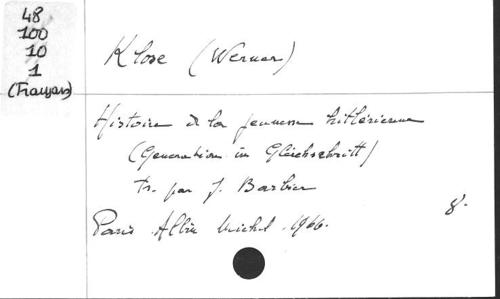 48
100
10
1
(Français)
Klose (Werner)
Histoire de la jeunesse hitlérienne
(Generation im Gleichschritt)
Tr. par J. Barbier
Paris Albin Michel. 1966.
8°